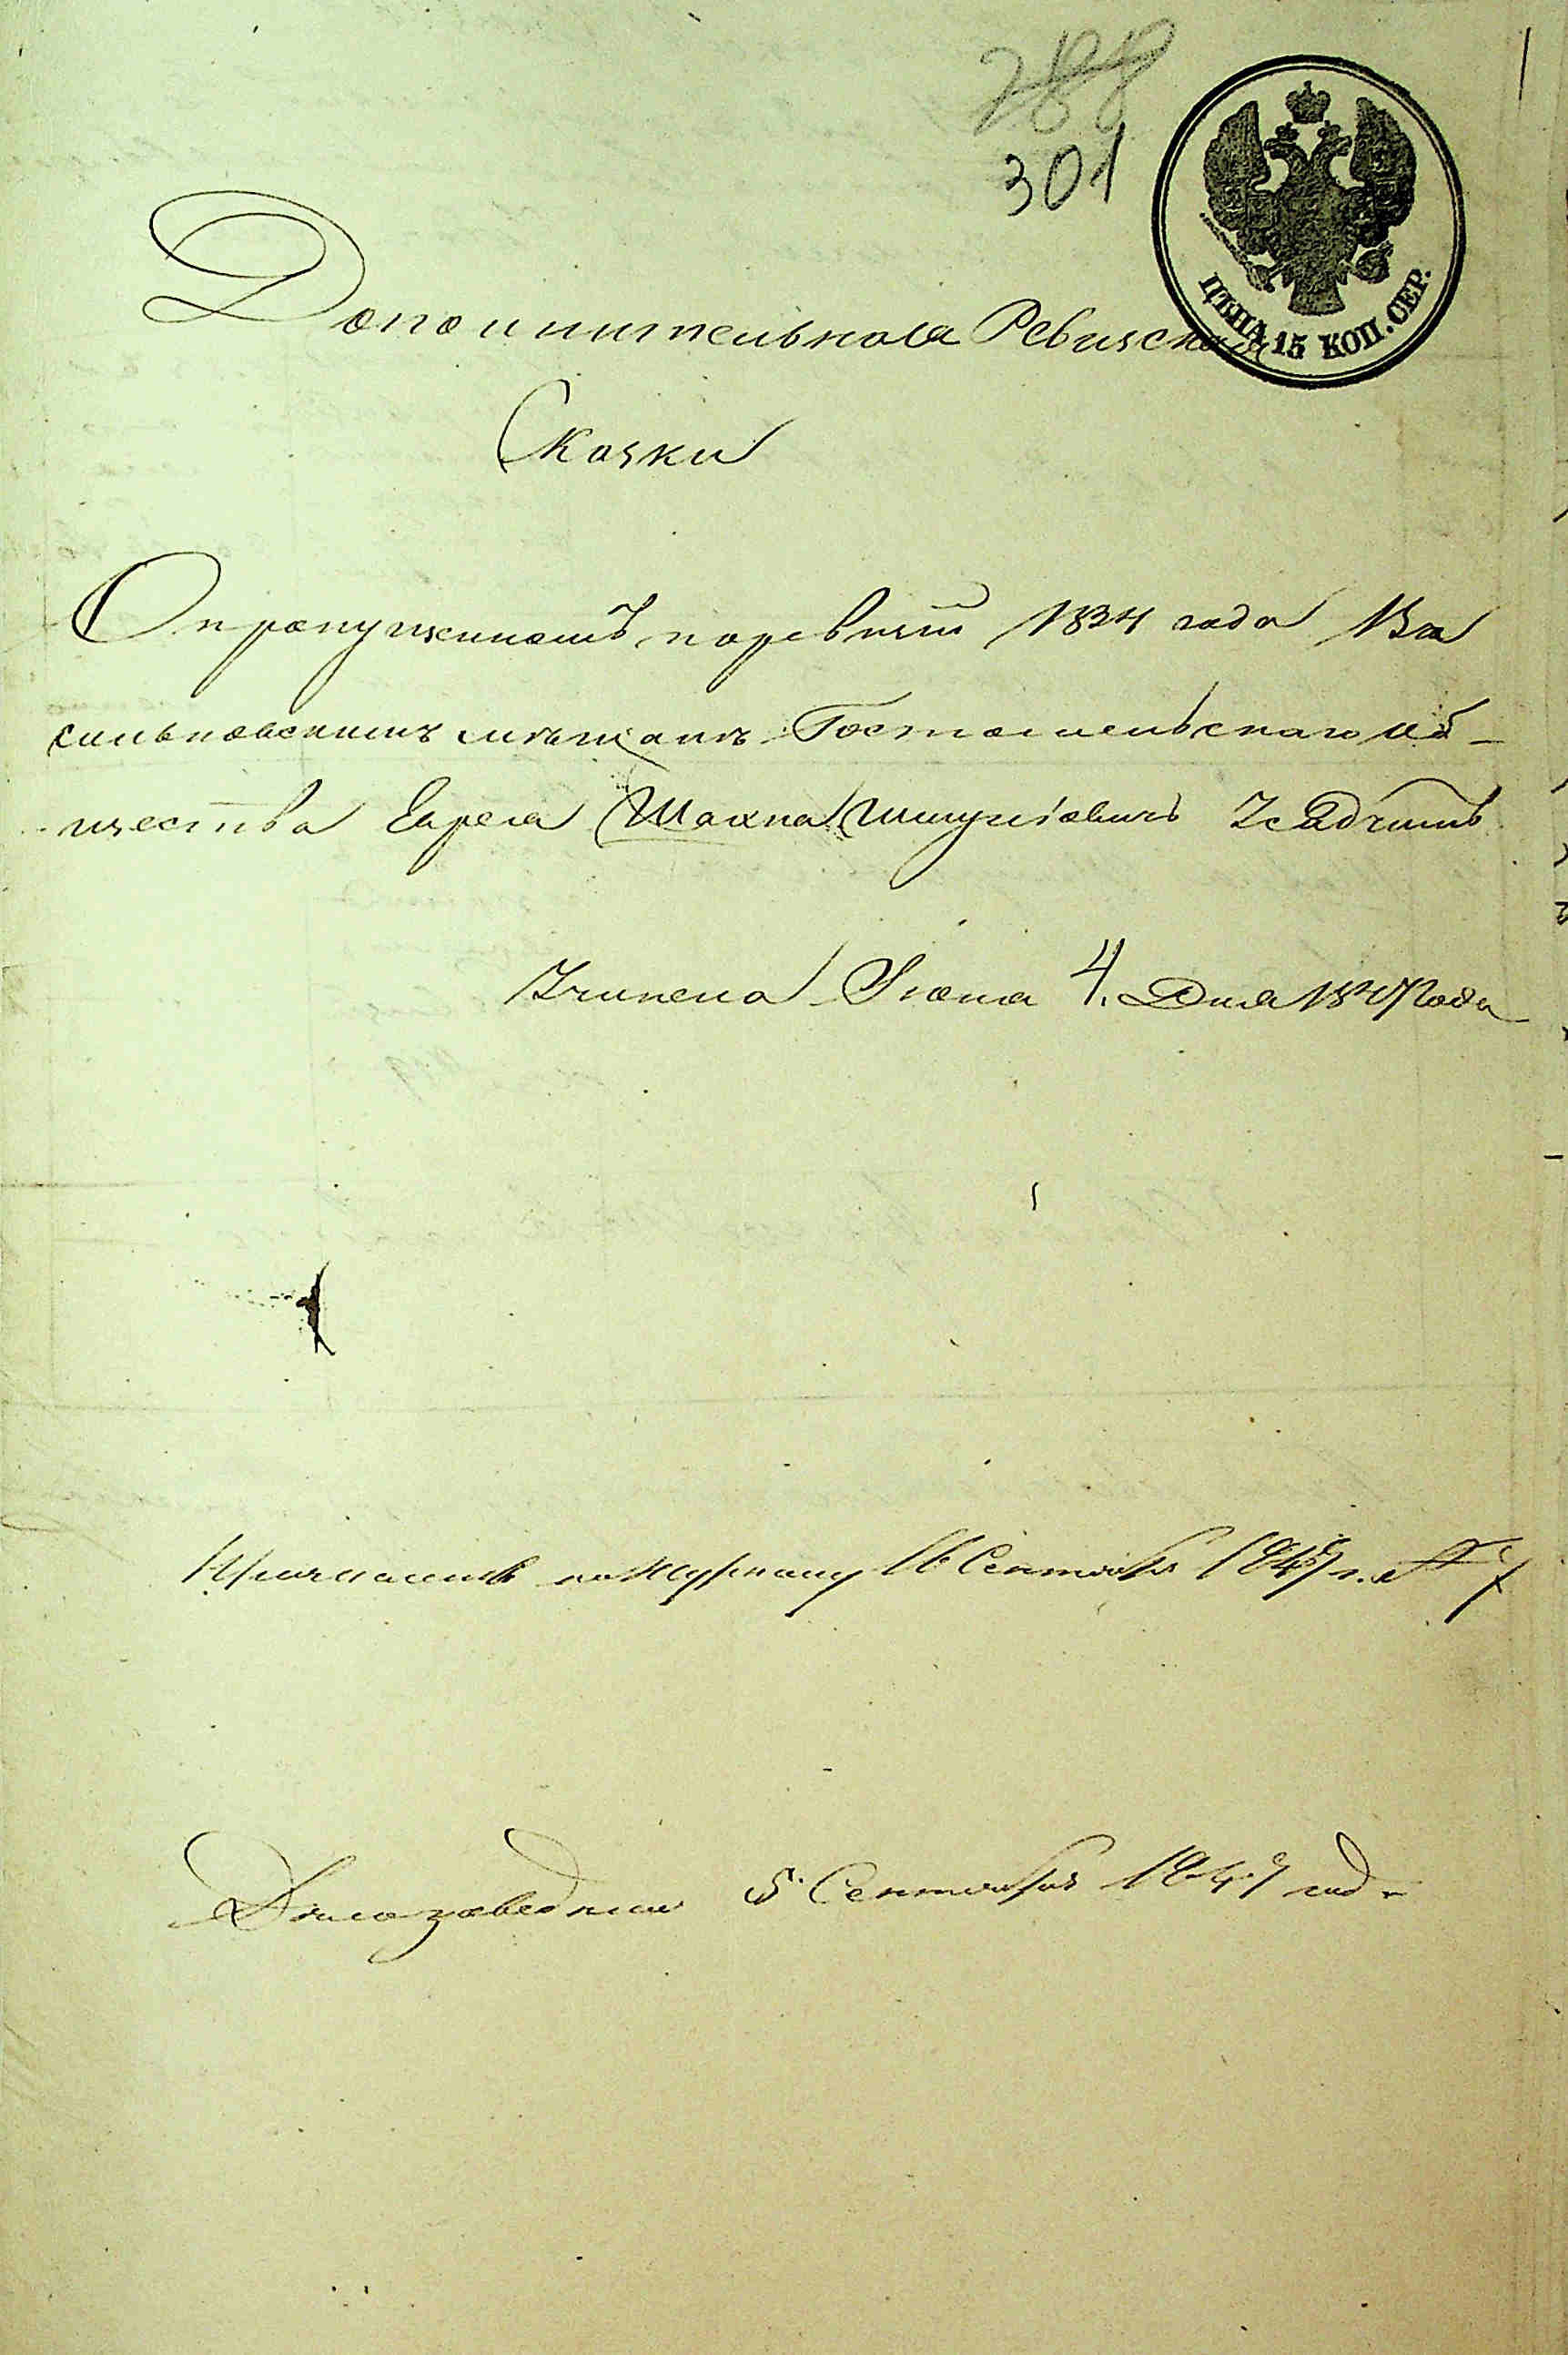 288
301
ЦѢНА 15 КОП. СЕР.
Дополнительная Ревизская
Сказки
О пропущенномъ по ревизіи 1834 года Ва
сильковскимъ мѣщанинъ Гостомельскаго об-
щества Еврея Шахна
Учинена Іюня 4. Дня 1847 года
по Журналу 16 Сентября 1847 г. № 7
5 Сентября 1847 года